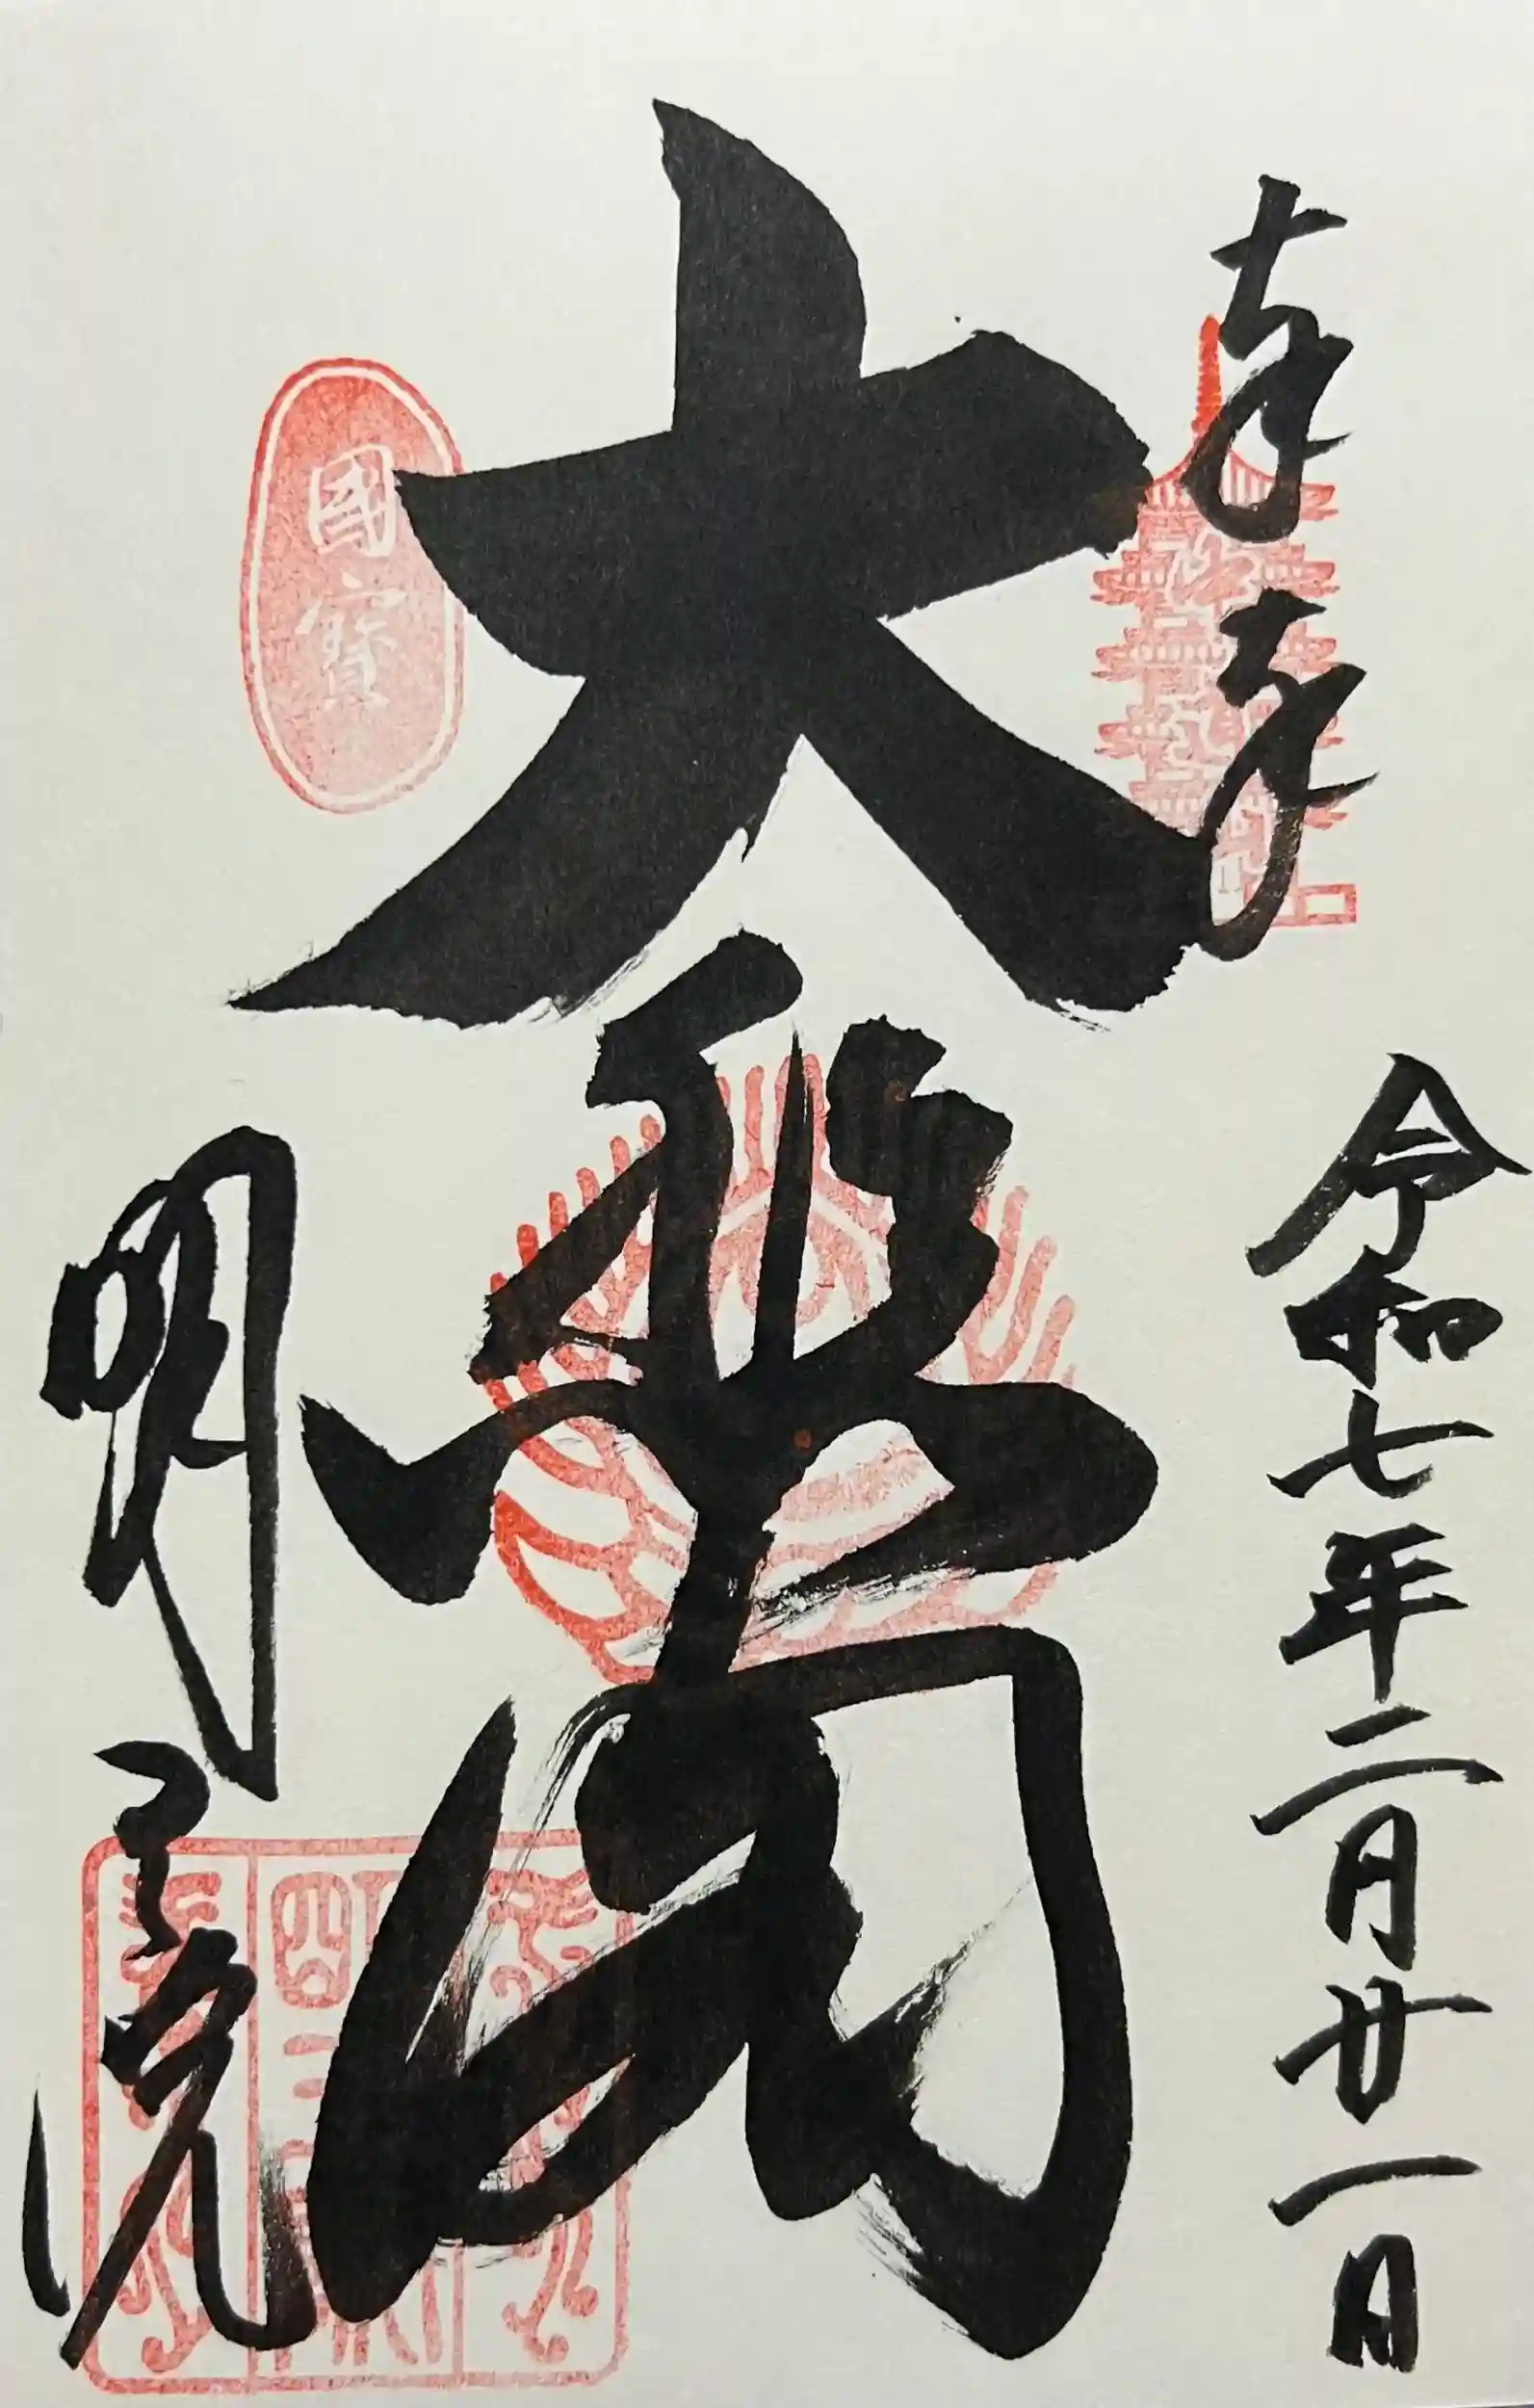 奉拝
令和七年二月廿一日
大悲閣
國寶
明王院